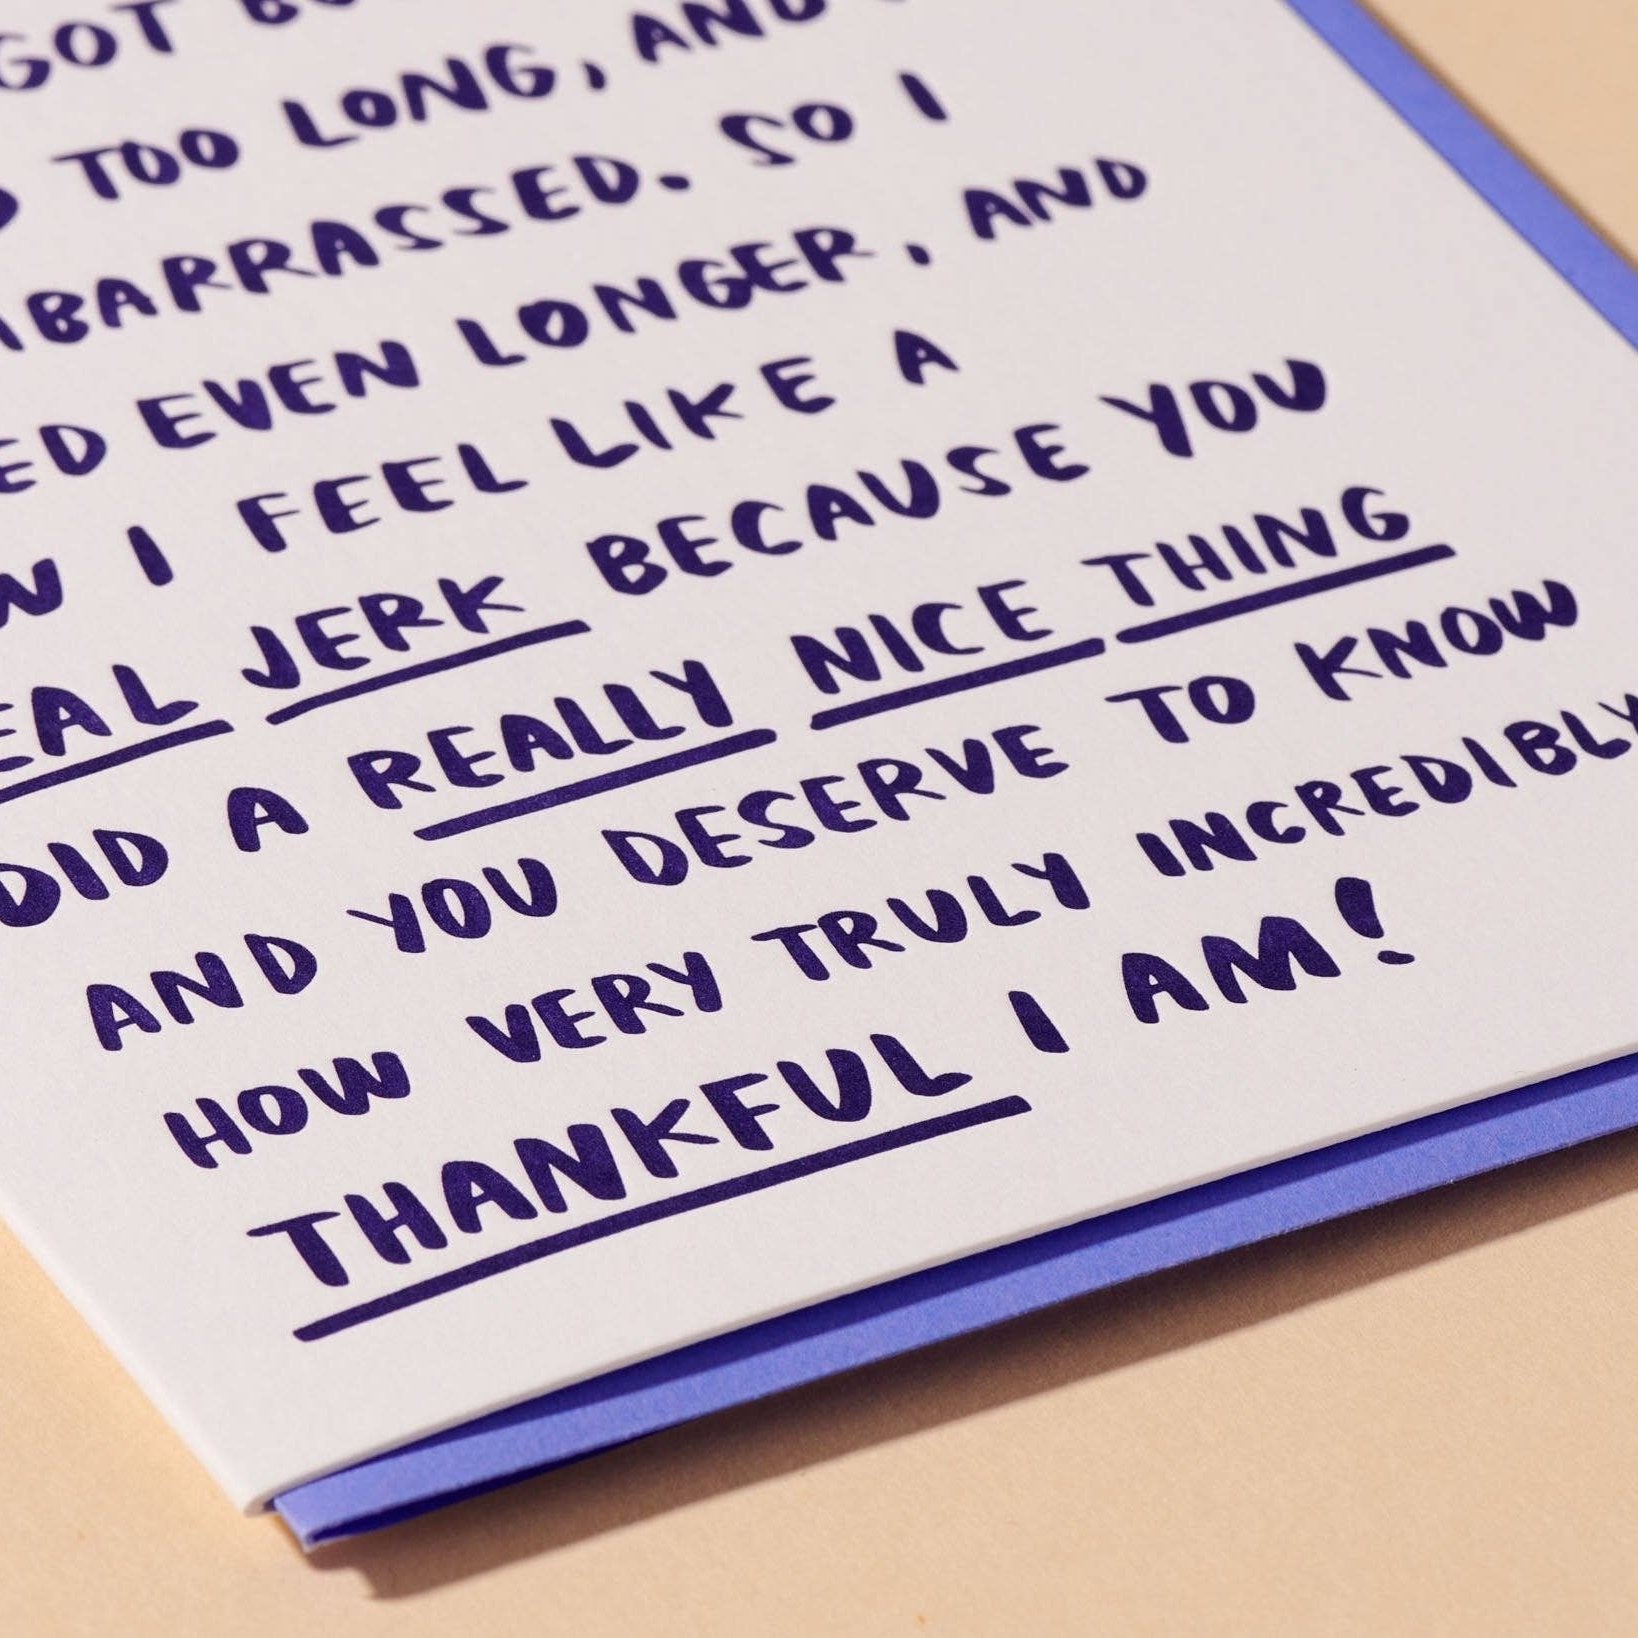 GOT
TOO LONG, AND
EMBARRASSED. SO I
EVEN LONGER, AND
I FEEL LIKE A
REAL JERK BECAUSE YOU
DID A REALLY NICE THING
AND YOU DESERVE TO KNOW
HOW VERY TRULY INCREDIBLY
THANKFUL I AM!